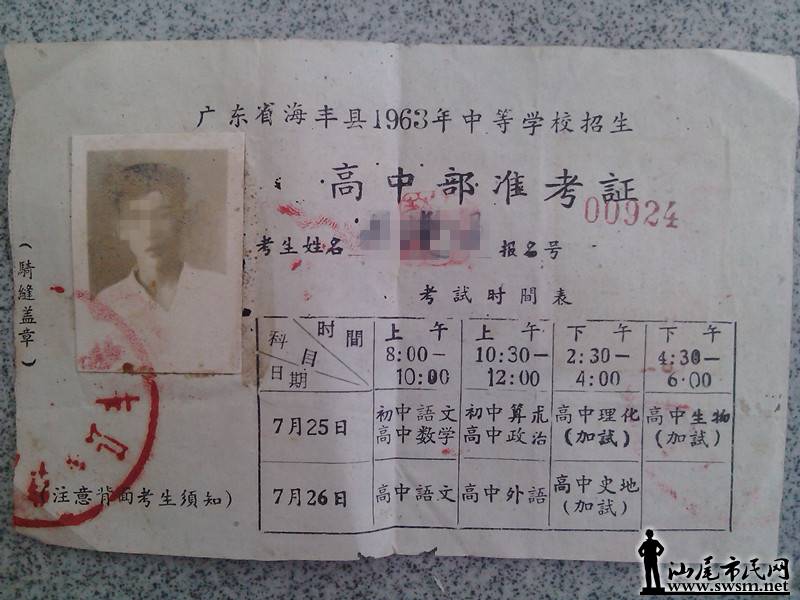 广东省海丰县1963年中等学校招生
高中部准考証
00924
考生姓名
报名号
(騎縫盖章)
考試时間表
科目 时間 日期
上午 8:00—10:00
上午 10:30—12:00
下午 2:30—4:00
下午 4:30—6:00
7月25日
初中語文 高中数学
初中算术 高中政治
高中理化 (加試)
高中生物 (加試)
7月26日
高中語文
高中外語
高中史地 (加試)
(注意背面考生须知)
汕尾市民网
www.swsm.net